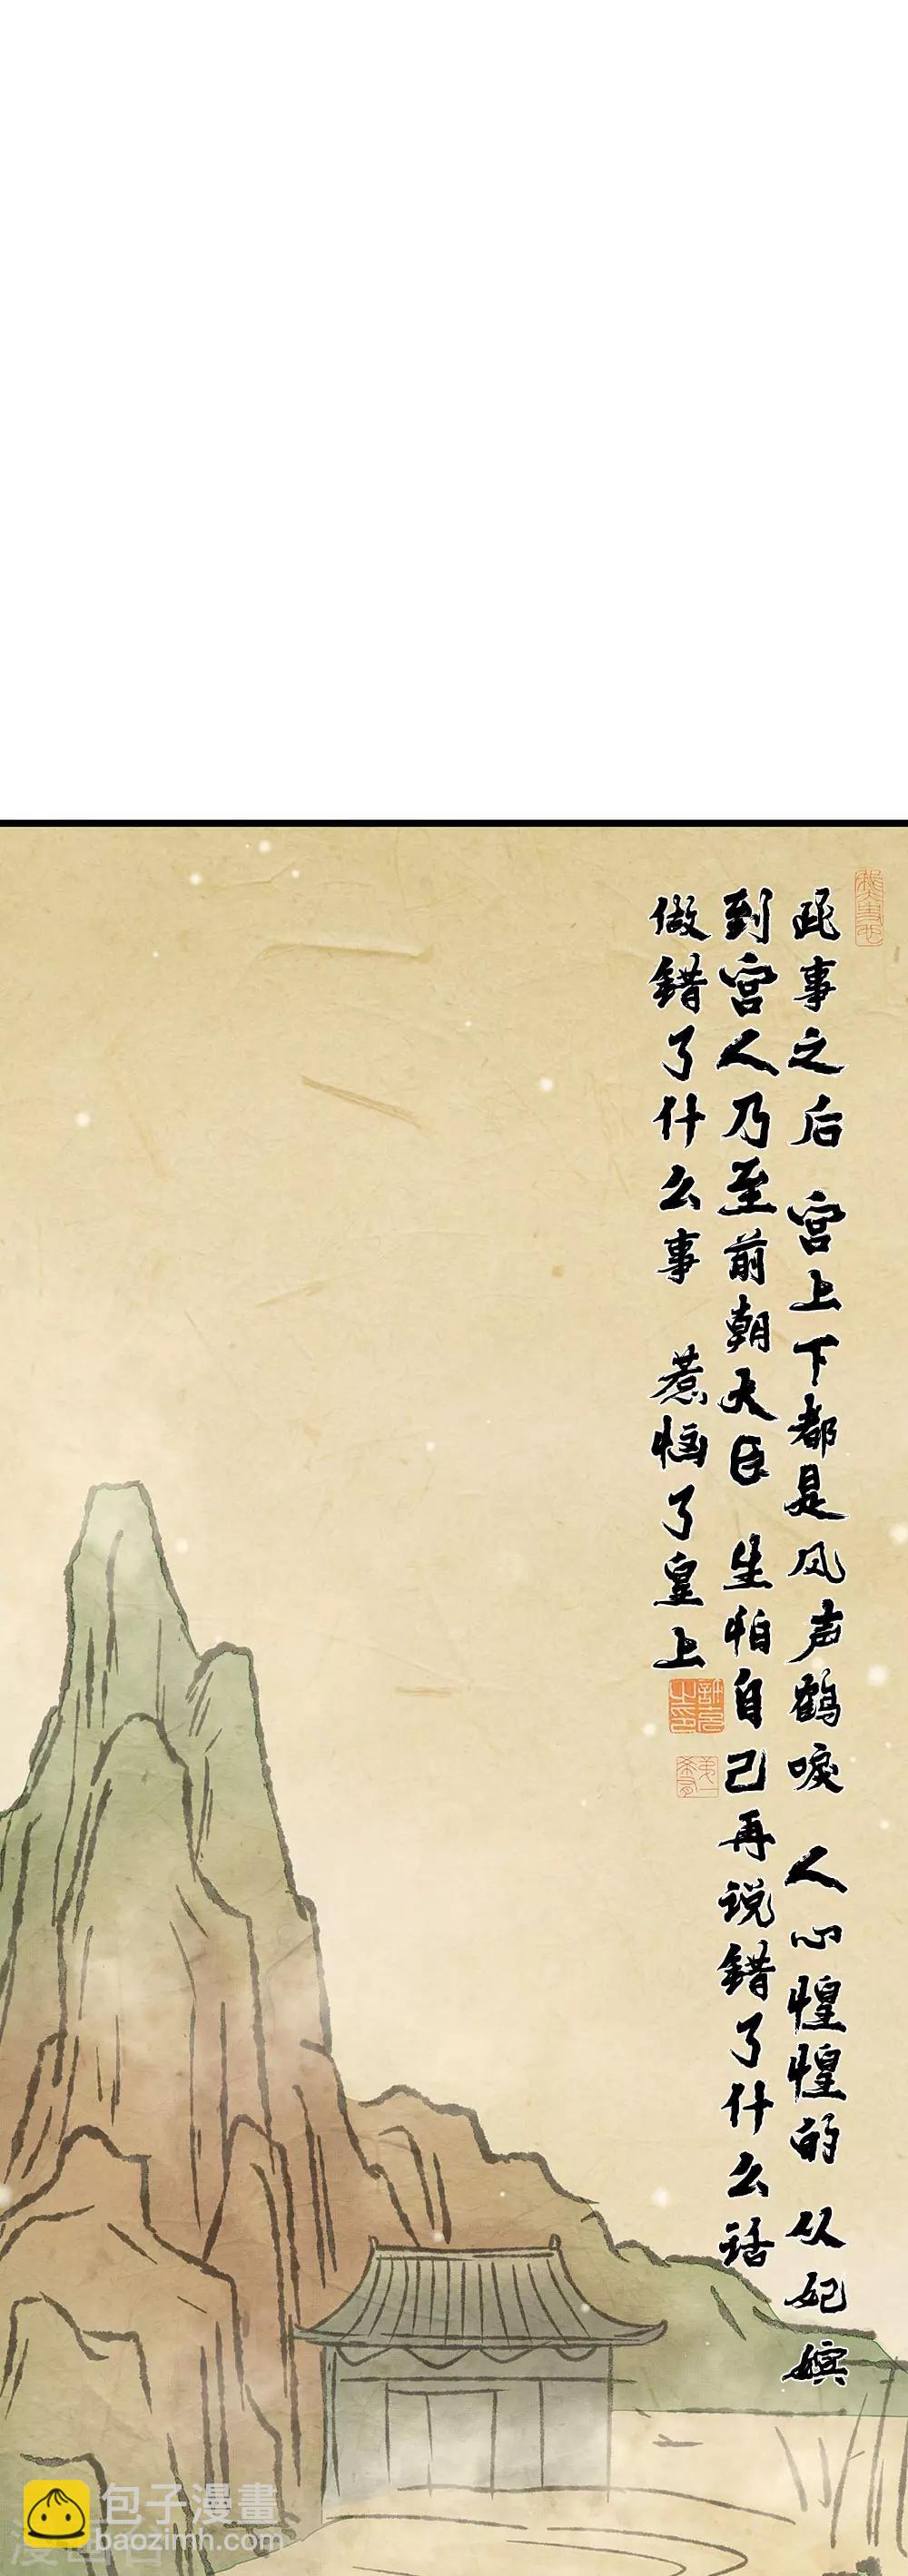 此事之后 宫上下都是风声鹤唳 人心惶惶的 从妃嫔
到宫人乃至前朝大臣 生怕自己再说错了什么话
做错了什么事 惹恼了皇上
包子漫畫
baozimh.com